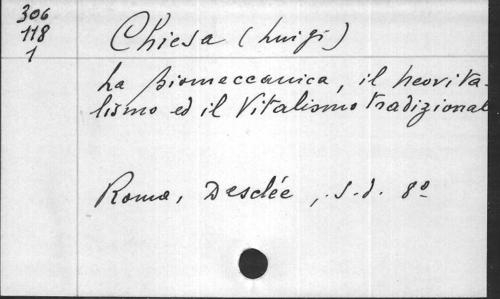 306
118
1
Chiesa (Luigi)
La Biomeccanica, il neovita-
lismo ed il Vitalismo tradizional
Roma, Desclée, s.d. 8º